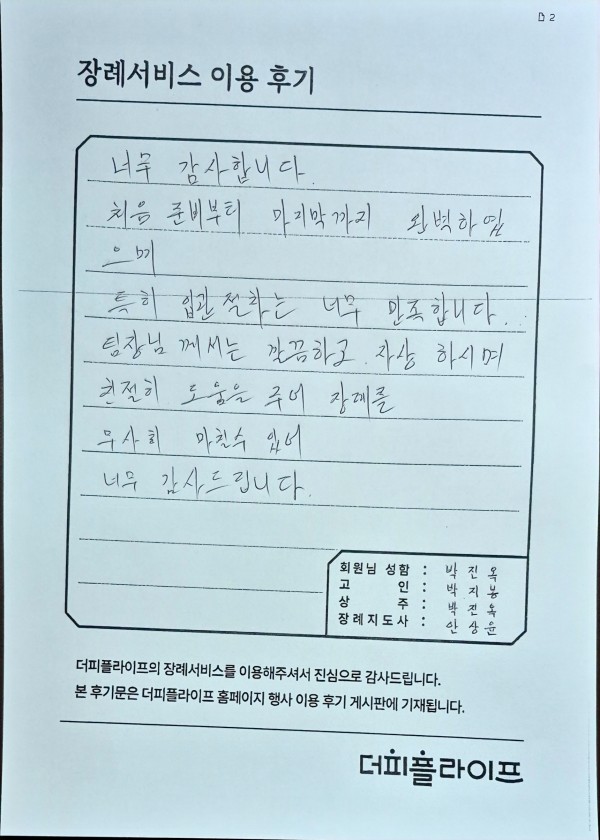 B2
장례서비스 이용 후기
너무 감사합니다.
처음 준비부터 마지막까지 완벽하였
으며
특히 입관절차는 너무 만족합니다.
팀장님 께서는 깔끔하고 자상 하시며
친절히 도움을 주어 장례를
무사히 마칠수 있어
너무 감사드립니다.
회원님 성함 : 박진옥
고 인 : 박지봉
상 주 : 박진옥
장례지도사 : 안상윤
더피플라이프의 장례서비스를 이용해주셔서 진심으로 감사드립니다.
본 후기문은 더피플라이프 홈페이지 행사 이용 후기 게시판에 기재됩니다.
더피플라이프